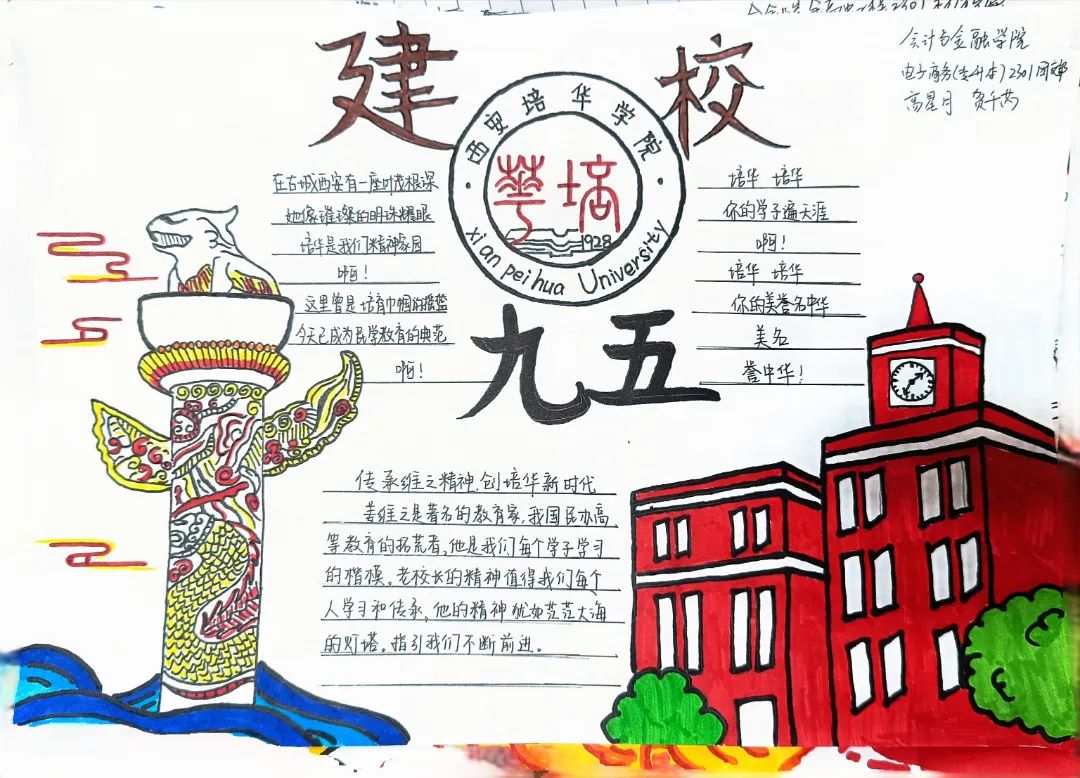 建校
会计与金融学院
电子商务(专升本)2301团
高星月 贺千芮
西安培华学院
華培
1928
xi an pei hua University
九五
在古城西安有一座叶茂根深
她像璀璨的明珠耀眼
培华是我们精神家园
啊!
这里曾是培育巾帼的摇篮
今天已成为民学教育的典范
啊!
培华 培华
你的学子遍天涯
啊!
培华 培华
你的美誉名中华
美名
誉中华!
传承维之精神,创培华新时代
姜维之是著名的教育家,我国民办高
等教育的拓荒者,他是我们每个学子学习
的楷模。老校长的精神值得我们每个
人学习和传承,他的精神犹如茫茫大海
的灯塔。指引我们不断前进。